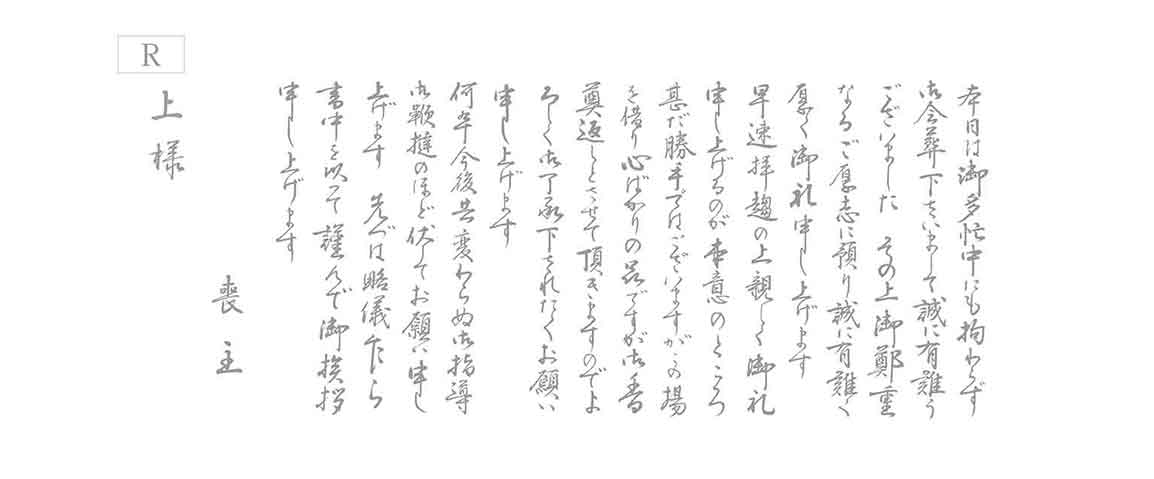 R
本日は御多忙中にも拘わらず
御会葬下さいまして誠に有難う
ございました　その上御鄭重
なるご厚志に預り誠に有難く
厚く御礼申し上げます
早速拝趨の上親しく御礼
申し上げるのが本意のところ
甚だ勝手ではございますがこの場
を借り心ばかりの品ですが御香
奠返しとさせて頂きますのでよ
ろしく御了承下されたくお願い
申し上げます
何卒今後共変わらぬ御指導
御鞭撻のほど伏してお願い申し
上げます　先づは略儀乍ら
書中を以って謹んで御挨拶
申し上げます
喪主
上様